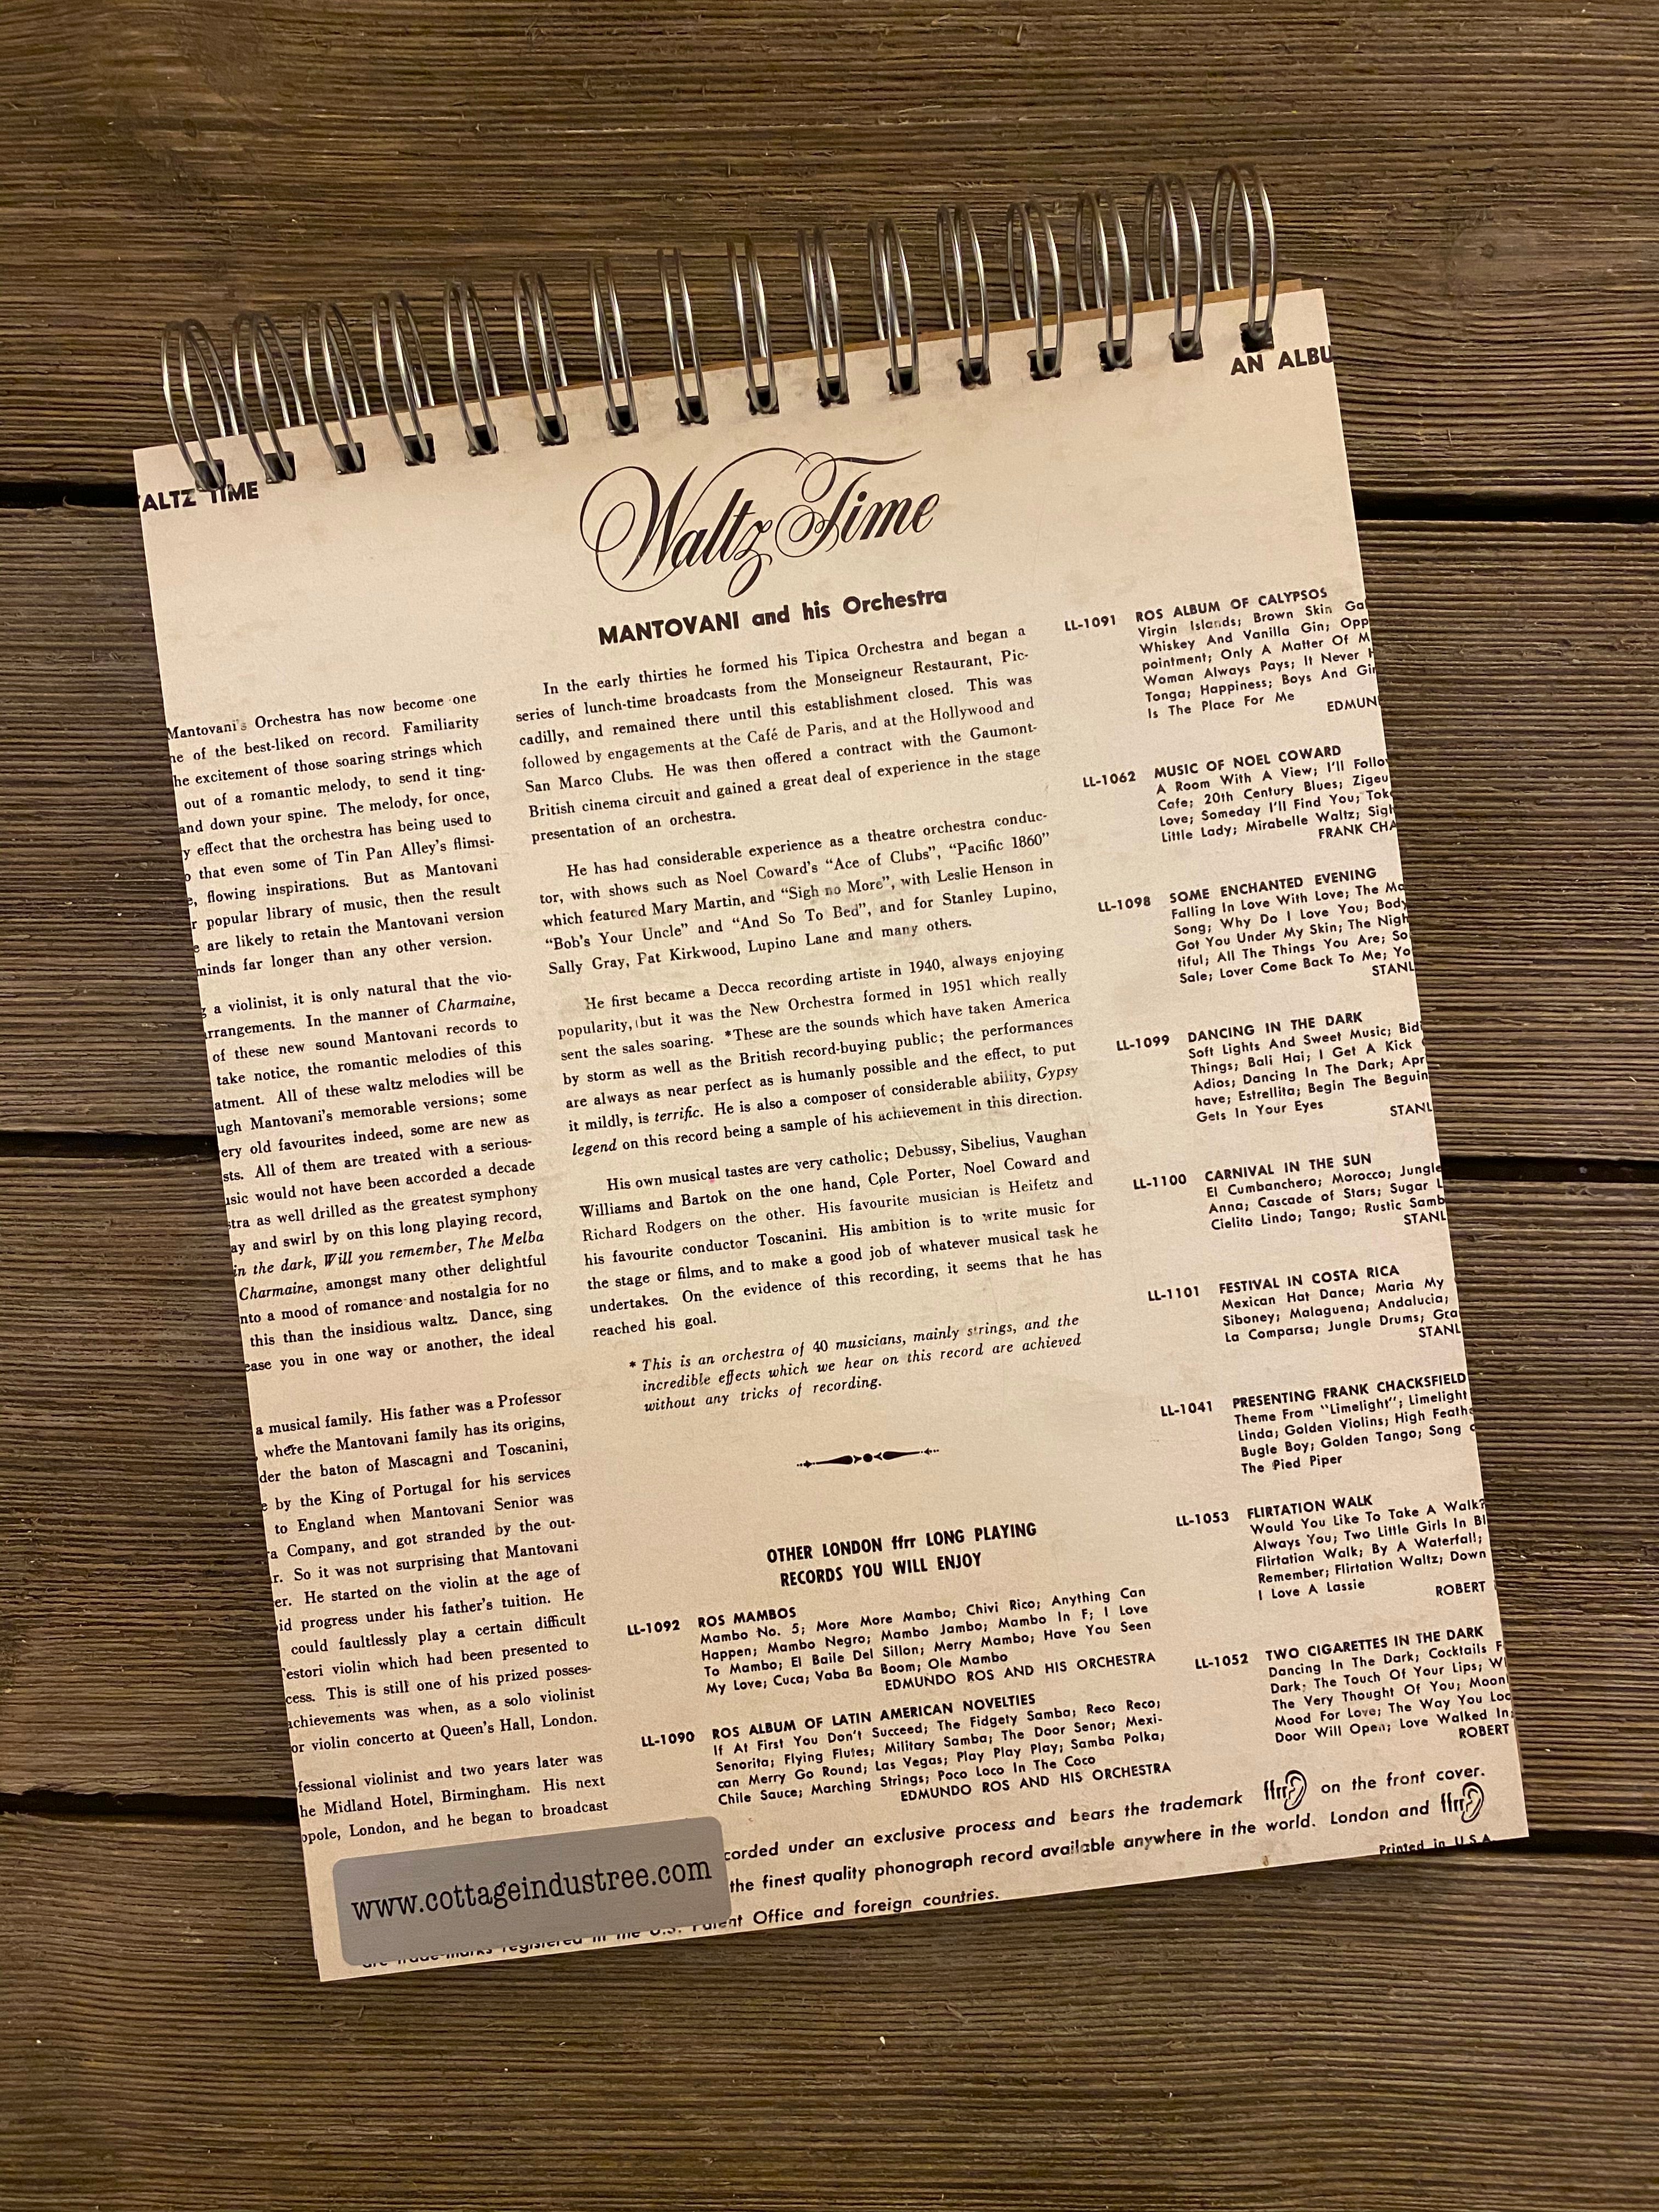 ALTZ TIME
AN ALBU
Waltz Time
MANTOVANI and his Orchestra
Mantovani's Orchestra has now become one
ne of the best-liked on record. Familiarity
he excitement of those soaring strings which
out of a romantic melody, to send it ting-
and down your spine. The melody, for once,
y effect that the orchestra has being used to
o that even some of Tin Pan Alley's flimsi-
e, flowing inspirations. But as Mantovani
r popular library of music, then the result
e are likely to retain the Mantovani version
minds far longer than any other version.
g a violinist, it is only natural that the vio-
rrangements. In the manner of Charmaine,
of these new sound Mantovani records to
take notice, the romantic melodies of this
atment. All of these waltz melodies will be
ugh Mantovani's memorable versions; some
ery old favourites indeed, some are new as
sts. All of them are treated with a serious-
usic would not have been accorded a decade
stra as well drilled as the greatest symphony
ay and swirl by on this long playing record,
in the dark, Will you remember, The Melba
Charmaine, amongst many other delightful
nto a mood of romance and nostalgia for no
this than the insidious waltz. Dance, sing
ease you in one way or another, the ideal
a musical family. His father was a Professor
where the Mantovani family has its origins,
der the baton of Mascagni and Toscanini,
e by the King of Portugal for his services
to England when Mantovani Senior was
a Company, and got stranded by the out-
r. So it was not surprising that Mantovani
er. He started on the violin at the age of
id progress under his father's tuition. He
could faultlessly play a certain difficult
estori violin which had been presented to
cess. This is still one of his prized posses-
achievements was when, as a solo violinist
or violin concerto at Queen's Hall, London.
fessional violinist and two years later was
he Midland Hotel, Birmingham. His next
opole, London, and he began to broadcast
In the early thirties he formed his Tipica Orchestra and began a
series of lunch-time broadcasts from the Monseigneur Restaurant, Pic-
cadilly, and remained there until this establishment closed. This was
followed by engagements at the Café de Paris, and at the Hollywood and
San Marco Clubs. He was then offered a contract with the Gaumont-
British cinema circuit and gained a great deal of experience in the stage
presentation of an orchestra.
He has had considerable experience as a theatre orchestra conduc-
tor, with shows such as Noel Coward's "Ace of Clubs", "Pacific 1860"
which featured Mary Martin, and "Sigh no More", with Leslie Henson in
"Bob's Your Uncle" and "And So To Bed", and for Stanley Lupino,
Sally Gray, Pat Kirkwood, Lupino Lane and many others.
He first became a Decca recording artiste in 1940, always enjoying
popularity, but it was the New Orchestra formed in 1951 which really
sent the sales soaring. *These are the sounds which have taken America
by storm as well as the British record-buying public; the performances
are always as near perfect as is humanly possible and the effect, to put
it mildly, is terrific. He is also a composer of considerable ability, Gypsy
legend on this record being a sample of his achievement in this direction.
His own musical tastes are very catholic; Debussy, Sibelius, Vaughan
Williams and Bartok on the one hand, Cole Porter, Noel Coward and
Richard Rodgers on the other. His favourite musician is Heifetz and
his favourite conductor Toscanini. His ambition is to write music for
the stage or films, and to make a good job of whatever musical task he
undertakes. On the evidence of this recording, it seems that he has
reached his goal.
* This is an orchestra of 40 musicians, mainly strings, and the
incredible effects which we hear on this record are achieved
without any tricks of recording.
OTHER LONDON ffrr LONG PLAYING
RECORDS YOU WILL ENJOY
LL-1092 ROS MAMBOS
Mambo No. 5; More More Mambo; Chivi Rico; Anything Can
Happen; Mambo Negro; Mambo Jambo; Mambo In F; I Love
To Mambo; El Baile Del Sillon; Merry Mambo; Have You Seen
My Love; Cuca; Vaba Ba Boom; Ole Mambo
EDMUNDO ROS AND HIS ORCHESTRA
LL-1090 ROS ALBUM OF LATIN AMERICAN NOVELTIES
If At First You Don't Succeed; The Fidgety Samba; Reco Reco;
Senorita; Flying Flutes; Military Samba; The Door Senor; Mexi-
can Merry Go Round; Las Vegas; Play Play Play; Samba Polka;
Chile Sauce; Marching Strings; Poco Loco In The Coco
EDMUNDO ROS AND HIS ORCHESTRA
LL-1091 ROS ALBUM OF CALYPSOS
Virgin Islands; Brown Skin Ga
Whiskey And Vanilla Gin; Opp
pointment; Only A Matter Of M
Woman Always Pays; It Never H
Tonga; Happiness; Boys And Gir
Is The Place For Me
EDMUN
LL-1062 MUSIC OF NOEL COWARD
A Room With A View; I'll Follo
Cafe; 20th Century Blues; Zigeu
Love; Someday I'll Find You; Toke
Little Lady; Mirabelle Waltz; Sigh
FRANK CHA
LL-1098 SOME ENCHANTED EVENING
Falling In Love With Love; The Mo
Song; Why Do I Love You; Body
Got You Under My Skin; The Nigh
tiful; All The Things You Are; So
Sale; Lover Come Back To Me; Yo
STANL
LL-1099 DANCING IN THE DARK
Soft Lights And Sweet Music; Bid
Things; Bali Hai; I Get A Kick
Adios; Dancing In The Dark; Apr
have; Estrellita; Begin The Beguin
Gets In Your Eyes
STANL
LL-1100 CARNIVAL IN THE SUN
El Cumbanchero; Morocco; Jungle
Anna; Cascade of Stars; Sugar L
Cielito Lindo; Tango; Rustic Samb
STANL
LL-1101 FESTIVAL IN COSTA RICA
Mexican Hat Dance; Maria My
Siboney; Malaguena; Andalucia;
La Comparsa; Jungle Drums; Gra
STANL
LL-1041 PRESENTING FRANK CHACKSFIELD
Theme From "Limelight"; Limelight
Linda; Golden Violins; High Feath
Bugle Boy; Golden Tango; Song o
The Pied Piper
LL-1053 FLIRTATION WALK
Would You Like To Take A Walk?
Always You; Two Little Girls In Bl
Flirtation Walk; By A Waterfall;
Remember; Flirtation Waltz; Down
I Love A Lassie
ROBERT
LL-1052 TWO CIGARETTES IN THE DARK
Dancing In The Dark; Cocktails F
Dark; The Touch Of Your Lips; W
The Very Thought Of You; Moon
Mood For Love; The Way You Loo
Door Will Open; Love Walked In;
ROBERT
corded under an exclusive process and bears the trademark ffrr on the front cover.
the finest quality phonograph record available anywhere in the world. London and ffrr
are trade-marks registered in the U.S. Patent Office and foreign countries.
Printed in U.S.A.
www.cottageindustree.com